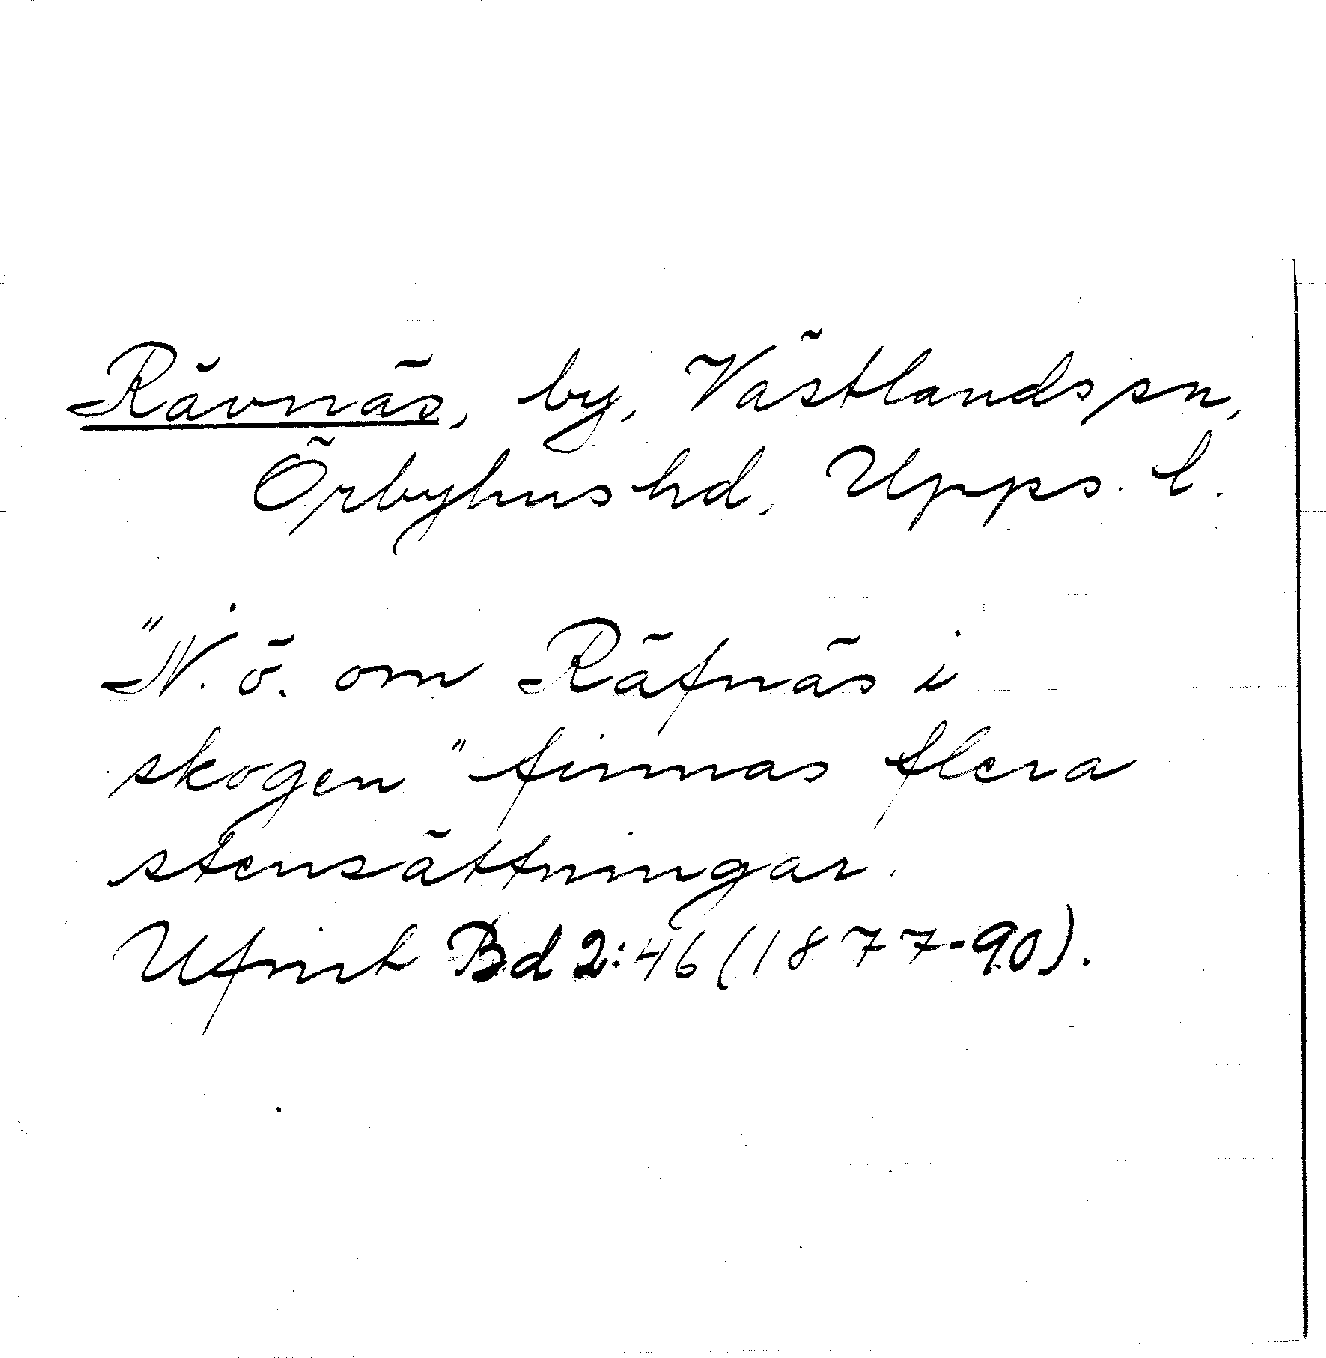 Rävnäs, by, Västlands sn,
Örbyhus hd, Upps. l.
"N. ö. om Räfnäs i
skogen" finnas flera
stensättningar.
Ufmt Bd 2:46 (1877-90).